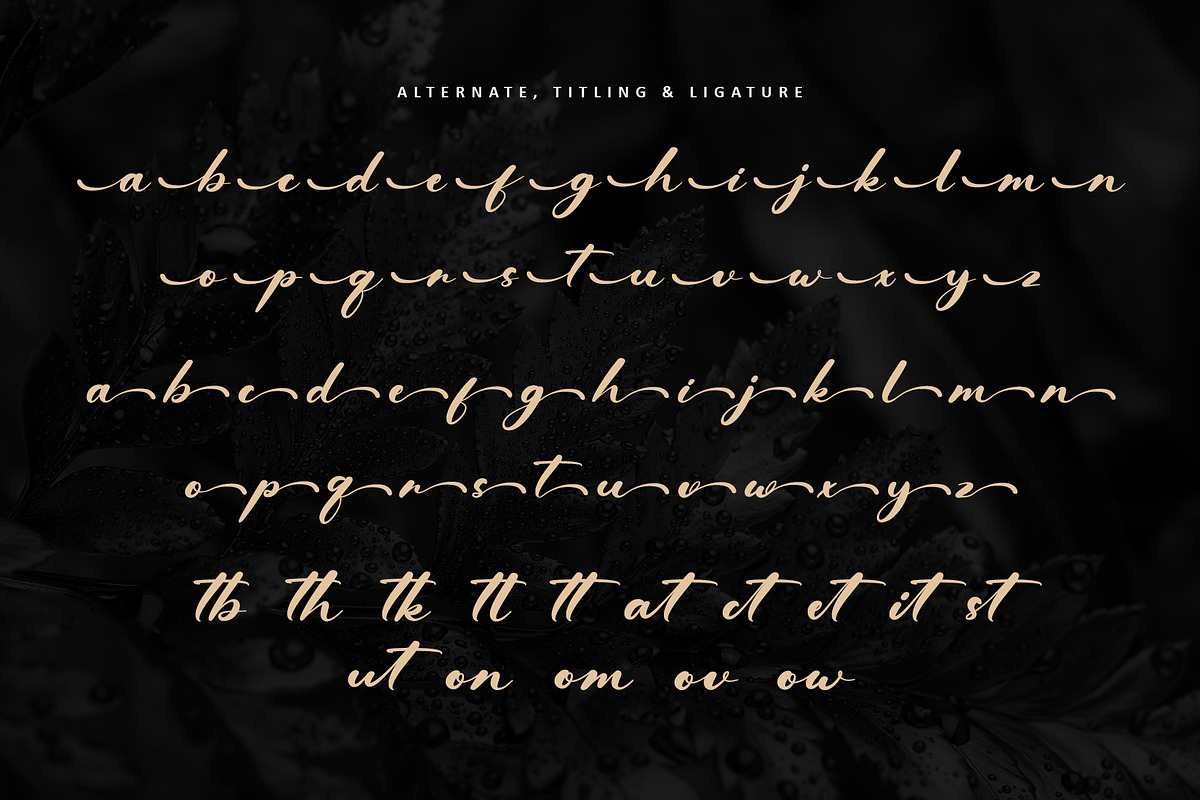 ALTERNATE, TITLING & LIGATURE
a b c d e f g h i j k l m n
o p q r s t u v w x y z
a b c d e f g h i j k l m n
o p q r s t u v w x y z
tb th tk tl tt at ct et it st
ut on om ov ow